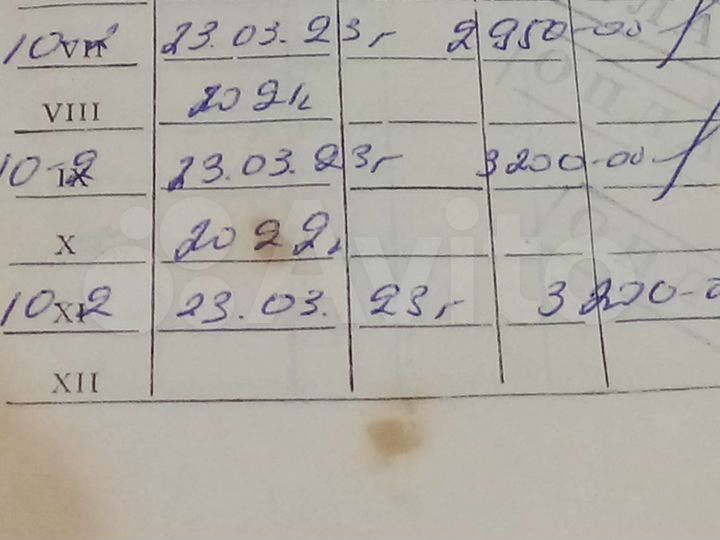 10-2 VII 23.03.23г 2950-00
VIII 2021г
10-2 IX 23.03.23г 3200-00
X 2022г
10-2 XI 23.03. 23г 3200-0
XII
Avito